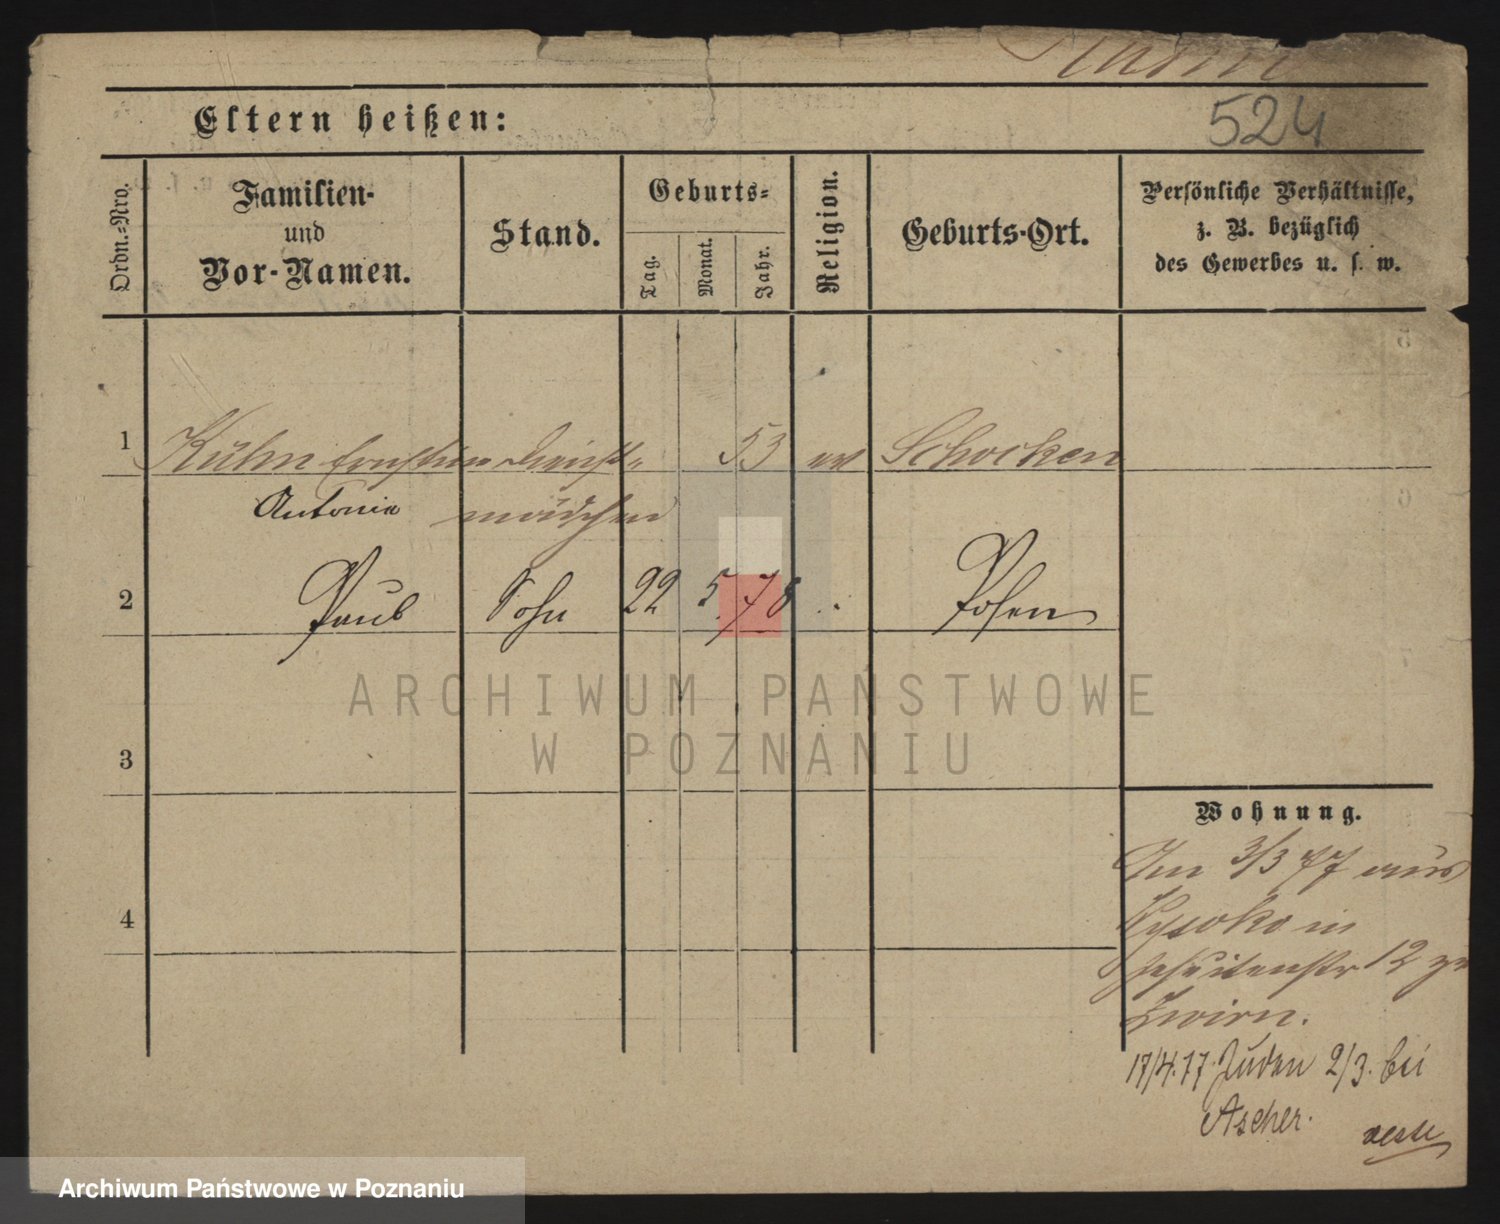 Kuhn
Eltern heißen:
524
Ordn.-Nro.
Familien-
und
Vor-Namen.
Stand.
Geburts-
Tag.
Monat.
Jahr.
Religion.
Geburts-Ort.
Persönliche Verhältnisse,
z. B. bezüglich
des Gewerbes u. s. w.
1 Kuhn Ernstine Dienst- 53 ev Schocken
Antonie mädchen
2 Paul Sohn 22 5. 78 Posen
ARCHIWUM PAŃSTWOWE
W POZNANIU
3
4
Wohnung.
Am 3/3 77 aus
in
Jesuitenstr 12 zu
Zwirn.
17/4.77. Juden 2/3. bei
Ascher.
Archiwum Państwowe w Poznaniu